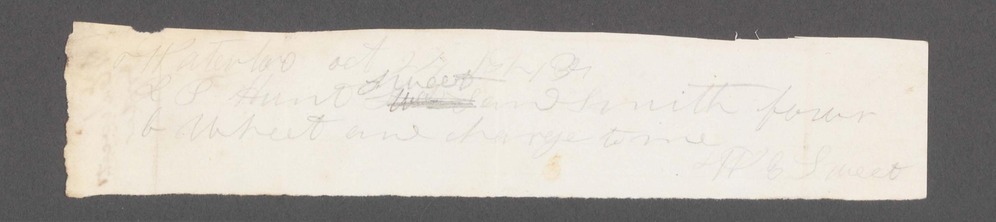 Waterloo oct
E S Hunt Sweet and Smith four
b Wheet and charge to me
W E Sweet